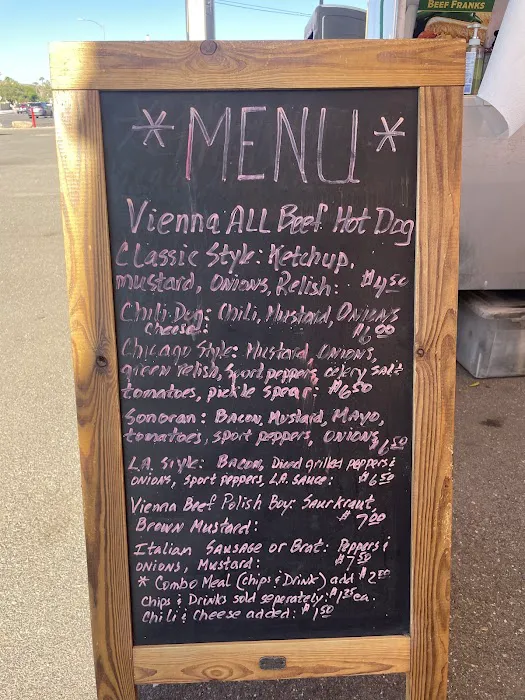 BEEF FRANKS
* MENU *
Vienna ALL Beef Hot Dog
Classic Style: Ketchup,
mustard, ONIONS, Relish: $4.50
Chili-Dog: Chili, Mustard, ONIONS
cheese: $6.00
Chicago Style: Mustard, ONIONS,
green relish, sport peppers, celery salt
tomatoes, pickle spear: $6.50
Sonoran: Bacon, Mustard, Mayo,
tomatoes, sport peppers, ONIONS, $6.50
L.A. Style: Bacon, Diced grilled peppers &
onions, sport peppers, L.A. sauce: $6.50
Vienna Beef Polish Boy: Saurkraut,
Brown Mustard: $7.00
Italian Sausage or Brat: Peppers &
onions, Mustard: $7.50
* Combo Meal (Chips & Drink) add $2.00
Chips & Drinks sold seperately: $1.25 ea.
Chili & Cheese added: $1.50